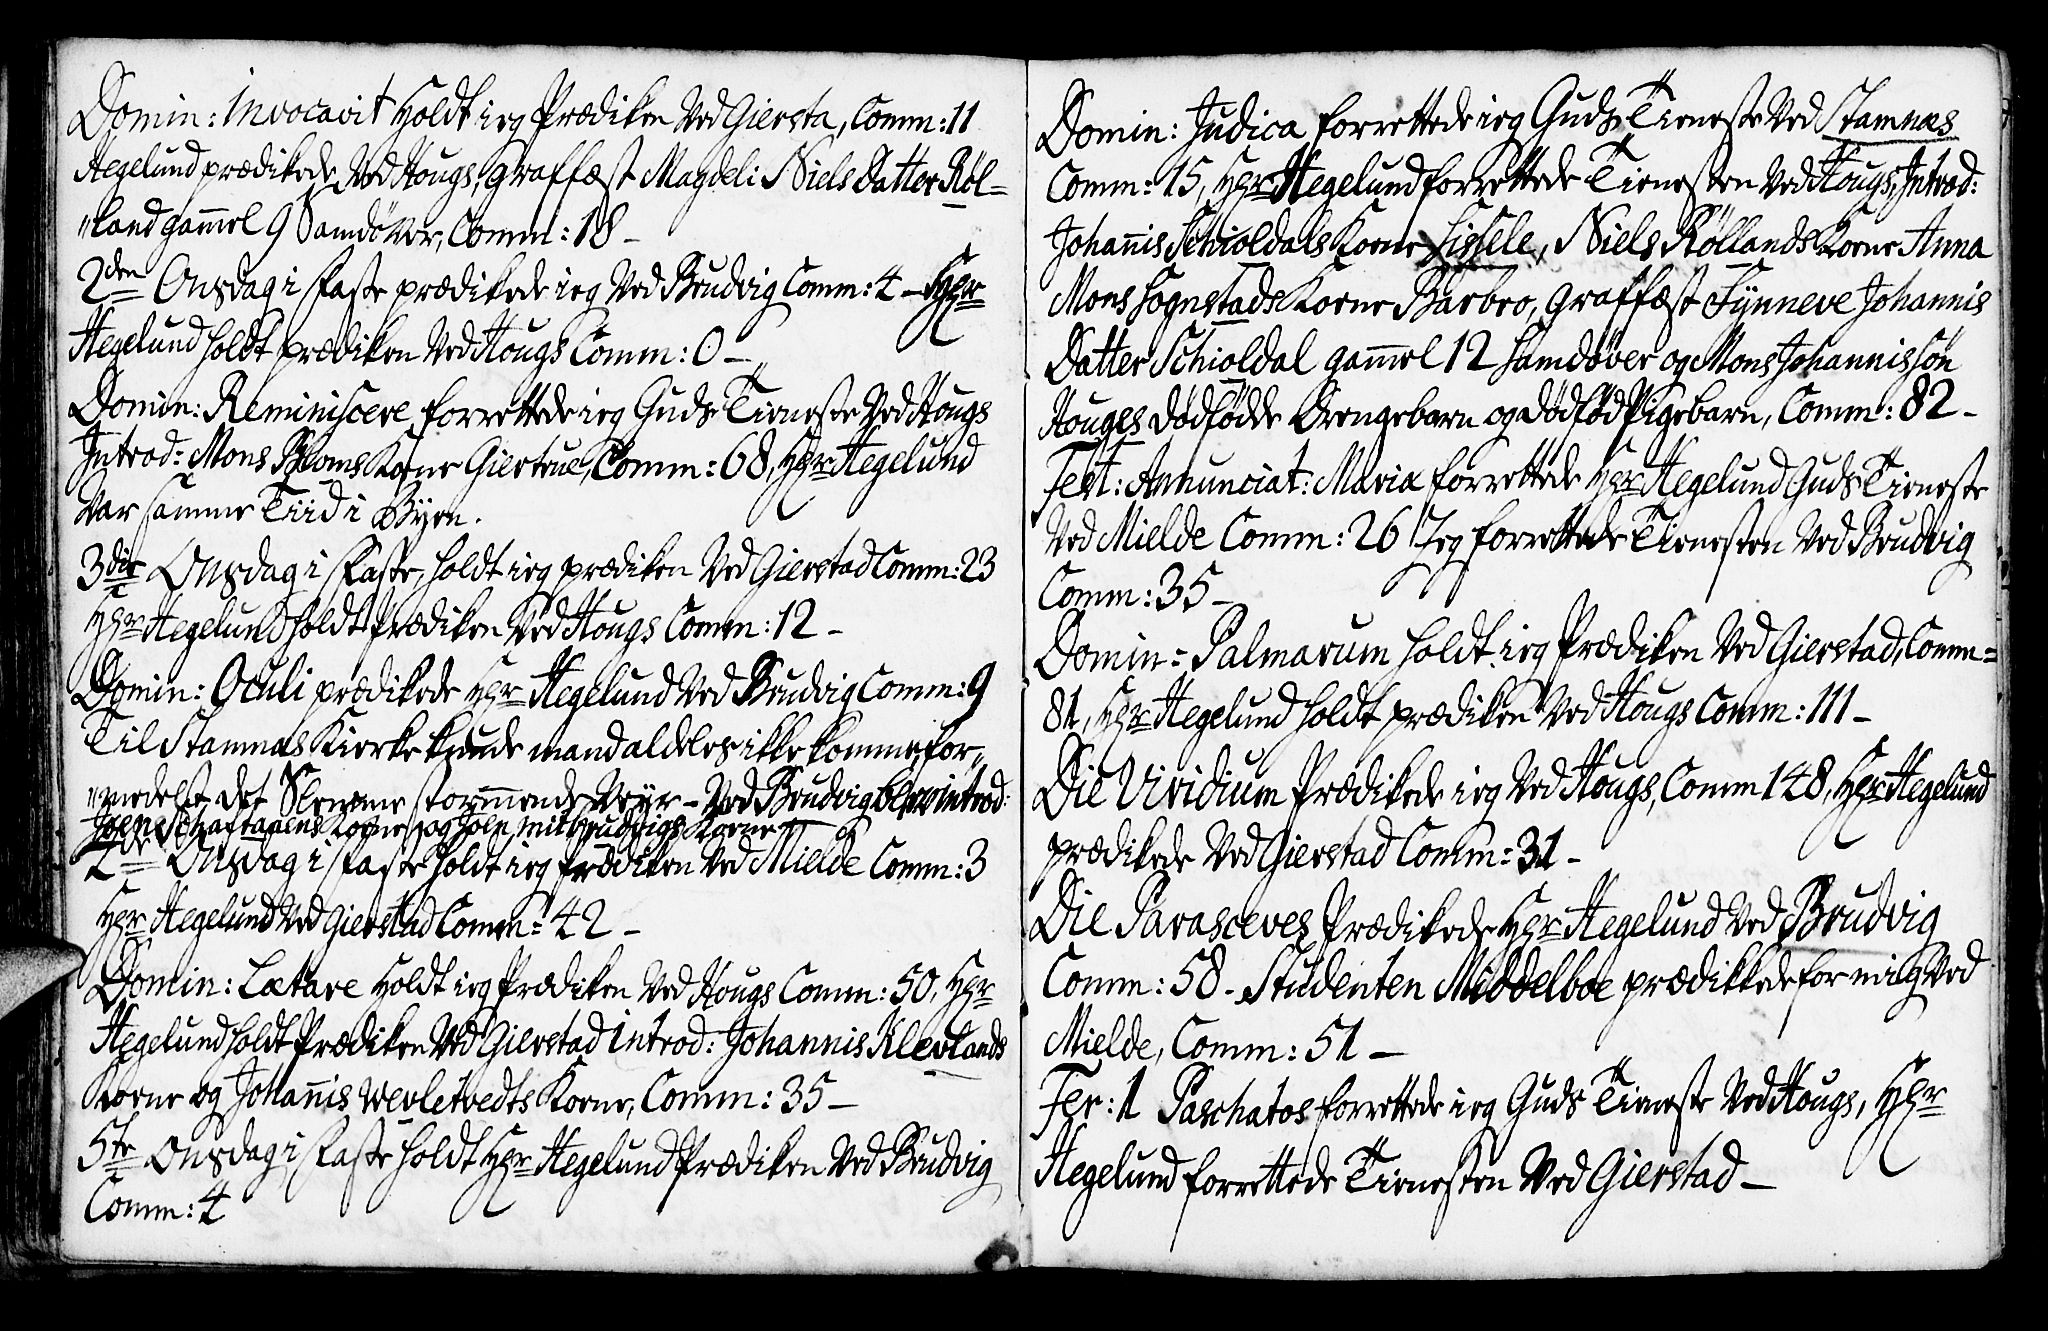 Domin: Invocavit Holdt ieg Prædiken Ved Giersta, Comm: 11
Hegelund prædikede Ved Hougs, graffæst Magdeli Niels Datter Røl-
"land gam̄el 9 Samdøver, Comm: 18 -
2den Onsdag i Faste prædikede ieg Ved Brudvig Comm: 4 - Hr
Hegelund holdt prædiken Ved Hougs Comm: 0 -
Domin: Reminiscere forrettede ieg Guds Tieneste Ved Hougs
Introd: Mons Bloms Kone Giertrue, Comm: 68, Hr Hegelund
Var samme Tiid i Byen.
3die Onsdag i Faste, holdt ieg prædiken Ved Gierstad Comm: 23
Hr Hegelund holdt Prædiken Ved Hougs Comm: 12 -
Domin: Oculi prædikede Hr Hegelund Ved Brudvig Comm: 9
Til Stamnæs Kierke kunde mand aldeles ikke komme, for-
"medelst det Slemme stormende Veyr - Ved Brudvig blev introd:
Kone, og Joen Kone
4de Onsdag i Faste holdt ieg prædiken Ved Mielde Comm: 3
Hr Hegelund Ved Gierstad Comm: 42 -
Domin: Lætare Holdt ieg Prædiken Ved Hougs Comm: 50, Hr
Hegelund holdt Prædiken Ved Gierstad introd: Johannis Klevlands
Koene og Johan̄is Wevletvedts Koene, Comm: 35 -
5te Onsdag i Faste holdt Hr Hegelund Prædiken Ved Brudvig
Comm: 4
Domin: Judica forrettede ieg Guds Tieneste Ved Stamnæs
Comm: 15, Hr Hegelund forrettede Tienesten Ved Hougs, Introd:
Johan̄is Schioldals Koene Sissele, Niels Røllands Koene Anna
Mons Sognstads Koene Barbro, graffæst Synneve Johannis
Datter Schioldal gam̄el 12 Samdøver og Mons Johannissøn
Houges dødfødde Drengebarn og dødfød Pigebarn, Comm: 82 -
Fest: Annunciat: Mariæ forrettede Hr Hegelund Guds Tieneste
Ved Mielde Comm: 26 Jeg forrettede Tienesten Ved Brudvig
Comm: 35 -
Domin: Palmarum holdt ieg Prædiken Ved Gierstad, Comm=
81, Hr Hegelund holdt prædiken Ved Hougs Comm: 111 -
Die Viridium Prædikede ieg Ved Hougs, Comm 148, Hr Hegelund
prædikede Ved Gierstad Comm: 31 -
Die Parasceves Prædikede Hr Hegelund Ved Brudvig
Comm: 58 - Studenten Middelboe prædikkede for mieg Ved
Mielde, Comm: 51 -
Fer: 1 Paschatos forrettede ieg Guds Tieneste Ved Hougs, Hr
Hegelund forrettede Tienesten Ved Gierstad -